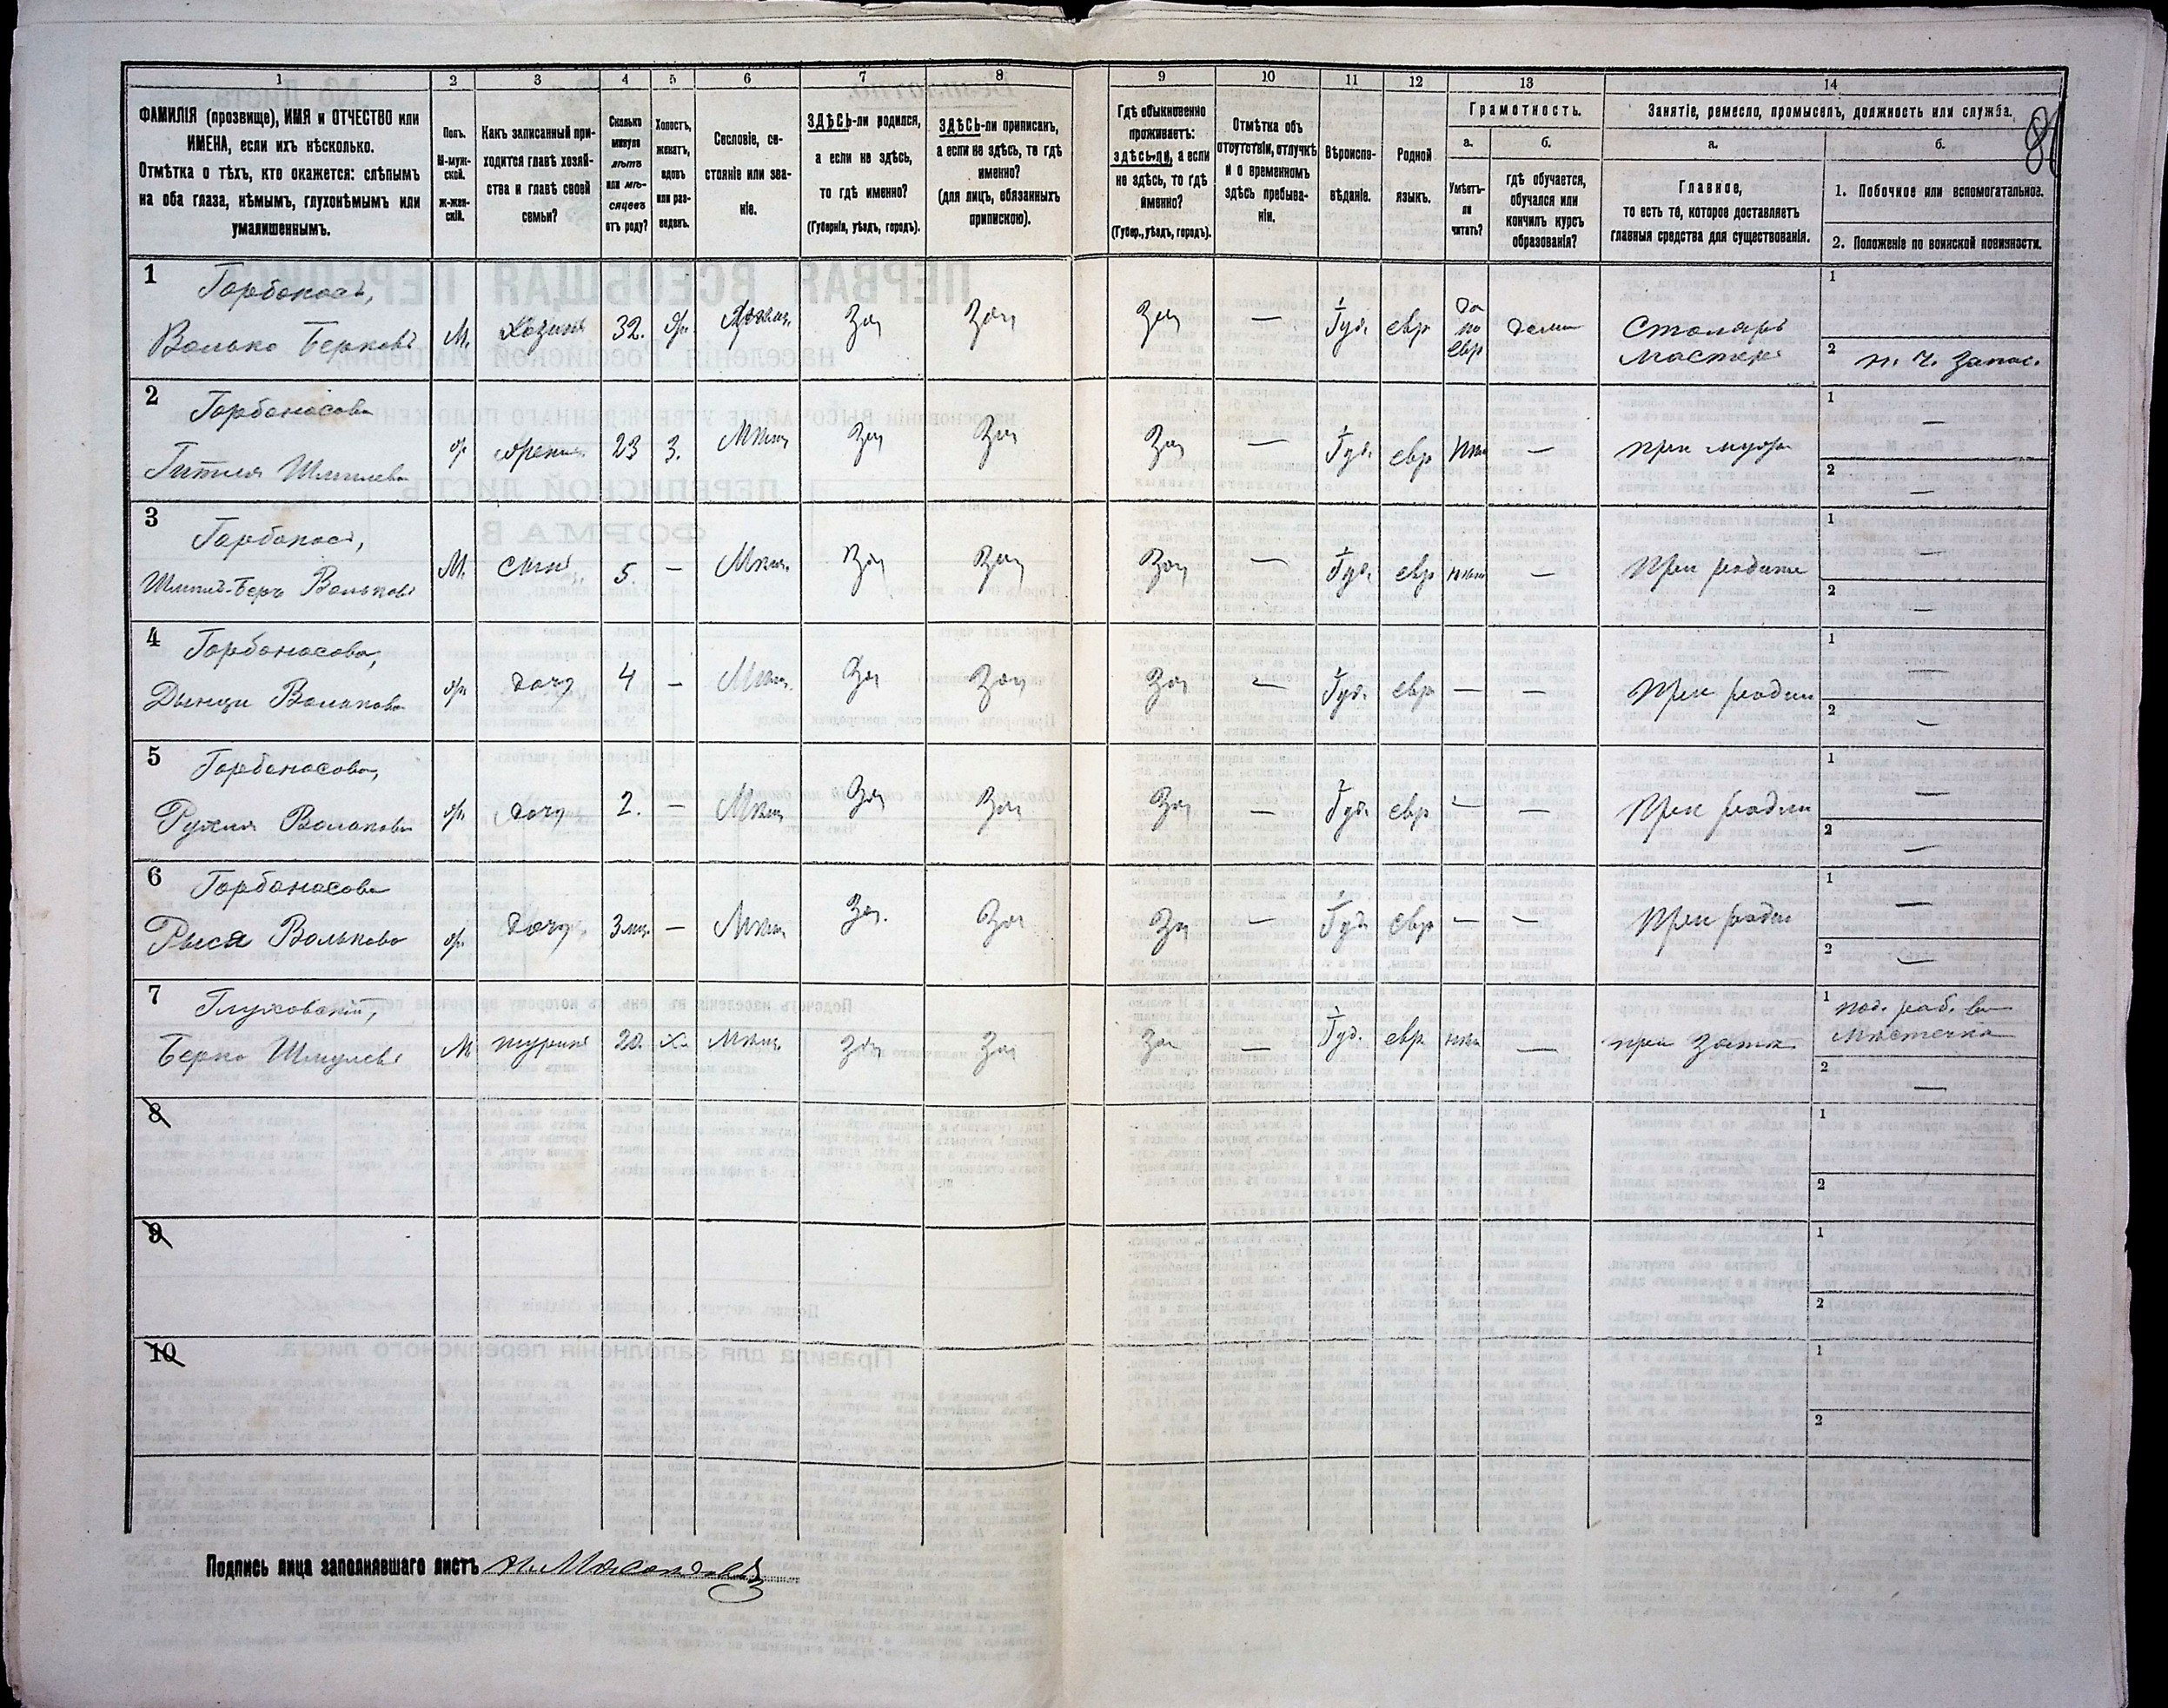 1 2 3 4 5 6 7 8 9 10 11 12 13 14
ФАМИЛІЯ (прозвище), ИМЯ и ОТЧЕСТВО или
ИМЕНА, если ихъ нѣсколько.
Отмѣтка о тѣхъ, кто окажется: слѣпымъ
на оба глаза, нѣмымъ, глухонѣмымъ или
умалишеннымъ.
Полъ.
М-муж-
ской.
ж-жен-
скій.
Какъ записанный при-
ходится главѣ хозяй-
ства и главѣ своей
семьи?
Сколько
минуло
лѣтъ
или мѣ-
сяцевъ
отъ роду?
Холостъ,
женатъ,
вдовъ
или раз-
веденъ.
Сословіе, со-
стояніе или зва-
ніе.
ЗДѢСЬ-ли родился,
а если не здѣсь,
то гдѣ именно?
(Губернія, уѣздъ, городъ).
ЗДѢСЬ-ли приписанъ,
а если не здѣсь, то гдѣ
именно?
(для лицъ, обязанныхъ
припискою).
Гдѣ обыкновенно
проживаетъ:
здѣсь-ли, а если
не здѣсь, то гдѣ
именно?
(Губер., уѣздъ, городъ).
Отмѣтка объ
отсутствіи, отлучкѣ
и о временномъ
здѣсь пребыва-
ніи.
Вѣроиспо-
вѣданіе.
Родной
языкъ.
Грамотность.
а.
Умѣетъ-
ли
читать?
б.
гдѣ обучается,
обучался или
кончилъ курсъ
образованія?
Занятіе, ремесло, промыселъ, должность или служба.
а.
Главное,
то есть то, которое доставляетъ
главныя средства для существованія.
б.
1. Побочное или вспомогательное.
2. Положеніе по воинской повинности.
1 Горбоносъ,
Волько Берковъ М. Хозяинъ 32. Зд. Зд. Зд. — Іуд. евр да по евр дома Столяръ мастеръ
1
2 н. ч. запас.
2 Горбоносова
Гитля Шмулева 23 З. Мѣщ. Зд. Зд. Зд. — Іуд. евр — при мужѣ
1 —
2 —
3 Горбоносъ,
Шмуль-Беръ Вольковъ М. Сынъ 5. — Мѣщ. Зд. Зд. Зд. — Іуд. евр — При родит.
1 —
2 —
4 Горбоносова,
Волькова дочь 4 — Мѣщ. Зд. Зд. Зд. — Іуд. евр — — При родит
1 —
2 —
5 Горбоносова,
Волькова дочь 2. — Мѣщ. Зд. Зд. Зд. — Іуд. евр — — При родит
1 —
2 —
6 Горбоносова
Рыся Волькова дочь 3 мѣс. — Мѣщ. Зд. Зд. Зд. — Іуд. евр — — При родит
1 —
2 —
7 Глуховскій,
Берко Шмулевъ М шуринъ 20. Х. Мѣщ. Зд. Зд. Зд. — Іуд. евр — при зятѣ
1 под. раб. въ
мѣстечкѣ
2 —
8
1
2
9
1
2
10
1
2
Подпись лица заполнявшаго листъ